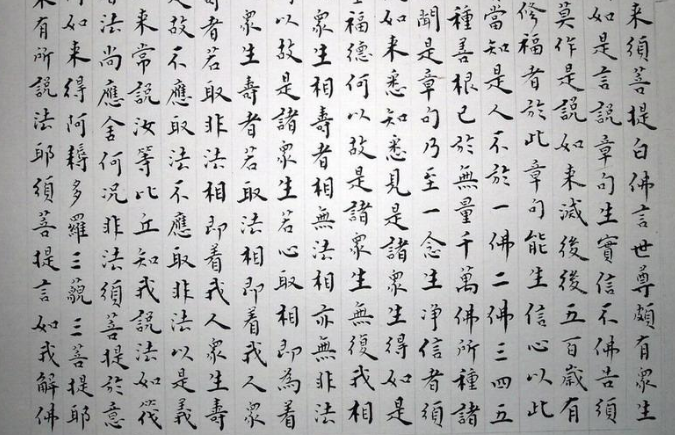 来須菩提白佛言世尊頗有衆生
如是言說章句生實信不佛告須
莫作是說如来滅後後五百歲有
修福者於此章句能生信心以此
當知是人不於一佛二佛三四五
種善根已於無量千萬佛所種諸
聞是章句乃至一念生净信者須
如来悉知悉見是諸衆生得如是
福德何以故是諸衆生無復我相
衆生相壽者相無法相亦無非法
以故是諸衆生若心取相即為着
衆生壽者若取法相即着我人衆
者若取非法相即着我人衆生壽
故不應取法不應取非法以是義
来常說汝等比丘知我說法如筏
法尚應舍何況非法須菩提於意
如来得阿耨多羅三藐三菩提耶
有所說法耶須菩提言如我解佛